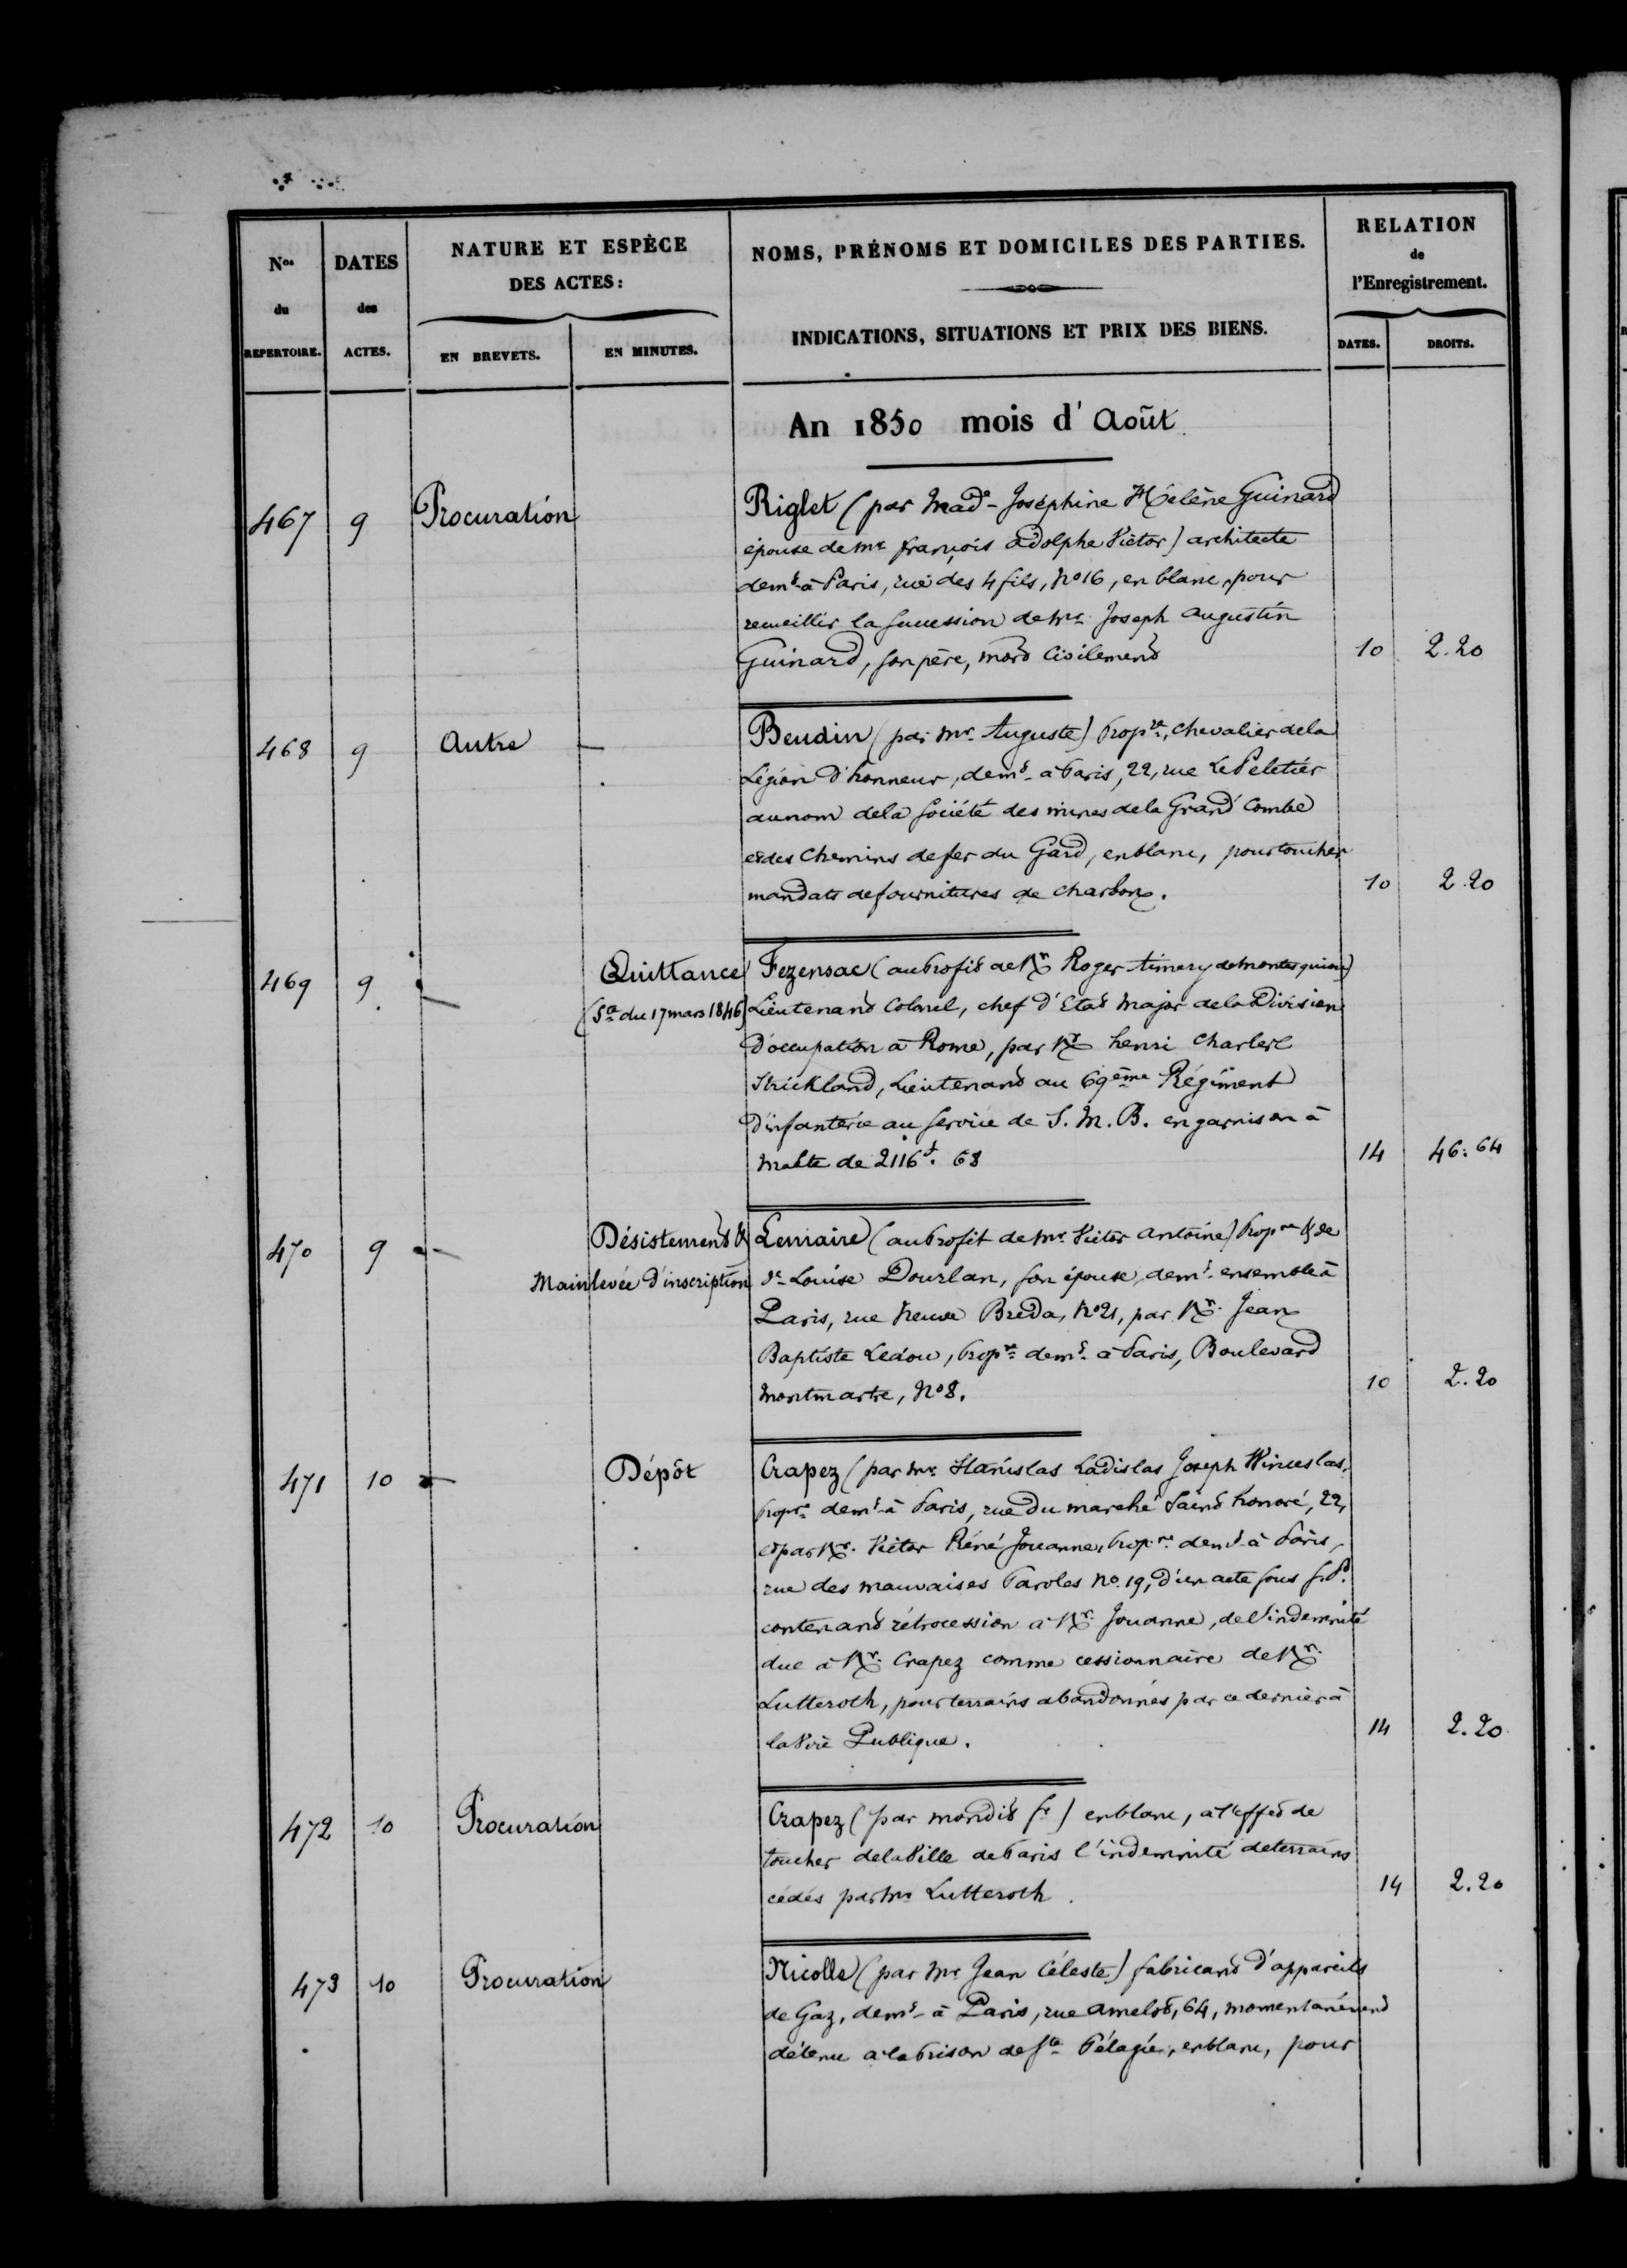 Nos du REPERTOIRE.
DATES des ACTES.
NATURE ET ESPÈCE DES ACTES:
EN BREVETS.
EN MINUTES.
NOMS, PRÉNOMS ET DOMICILES DES PARTIES.
INDICATIONS, SITUATIONS ET PRIX DES BIENS.
RELATION de l'Enregistrement.
DATES.
DROITS.
An 1850 mois d'Août
467 9 Procuration Riglet (par Made Joséphine Hélène Guinard
épouse de Mr françois adolphe Victor) architecte
demt à Paris, rue des 4 fils, No 16, en blanc, pour
recueillir la succession de Mr Joseph augustin
Guinard, son père, mort civilement 10 2.20
468 9 Autre — Beudin (par Mr. Auguste) Propre, chevalier de la
Légion d'honneur, demt à Paris, 22, rue Le Peletier
au nom de la Société des mines de la Grand' Combe
et des Chemins de fer du Gard, en blanc, pour toucher
mandats de fournitures de charbon. 10 2.20
469 9 — Quittance Fezensac (au Profit de Mr Roger Aimery de Montesquiou)
(Ste du 17 mars 1846) Lieutenant Colonel, chef d'Etat Major de la Division
d'occupation à Rome, par Mr henri Charles
Strickland, Lieutenant au 69ème Régiment
d'infanterie au service de S. M. B. en garnison à
Malte de 2116f. 68 14 46.64
470 9 — Désistement & Lemaire (au Profit de Mr. Victor Antoine) Propre & de
Mainlevée d'inscription De Louise Dourlan, son épouse, demt ensemble à
Paris, rue Neuve Breda, No 21, par Mr. Jean
Baptiste Ledou, Propre demt à Paris, Boulevard
Montmartre, No 8. 10 2.20
471 10 — Dépôt Crapez (par Mr Stanislas Ladislas Joseph Winceslas,
Propre demt à Paris, rue du marché Saint honoré, 22,
et par Mr. Victor Réné Jouanne, Propre demt à Paris,
rue des mauvaises Paroles No 19, d'un acte sous s.Pd.
contenant rétrocession à Mr. Jouanne, de l'indemnité
due à Mr. Crapez comme cessionnaire de Mr.
Lutteroth, pour terrains abandonnés par ce dernier à
la Voie Publique. 14 2.20
472 10 Procuration Crapez (par mondit Sr) en blanc, à l'effet de
toucher de la Ville de Paris l'indemnité de terrains
cédés par Mr Lutteroth. 14 2.20
473 10 Procuration Nicolle (par Mr Jean Céleste) fabricant d'appareils
de Gaz, demt à Paris, rue Amelot, 64, momentanément
détenu à la Prison de Ste Pélagie, en blanc, pour